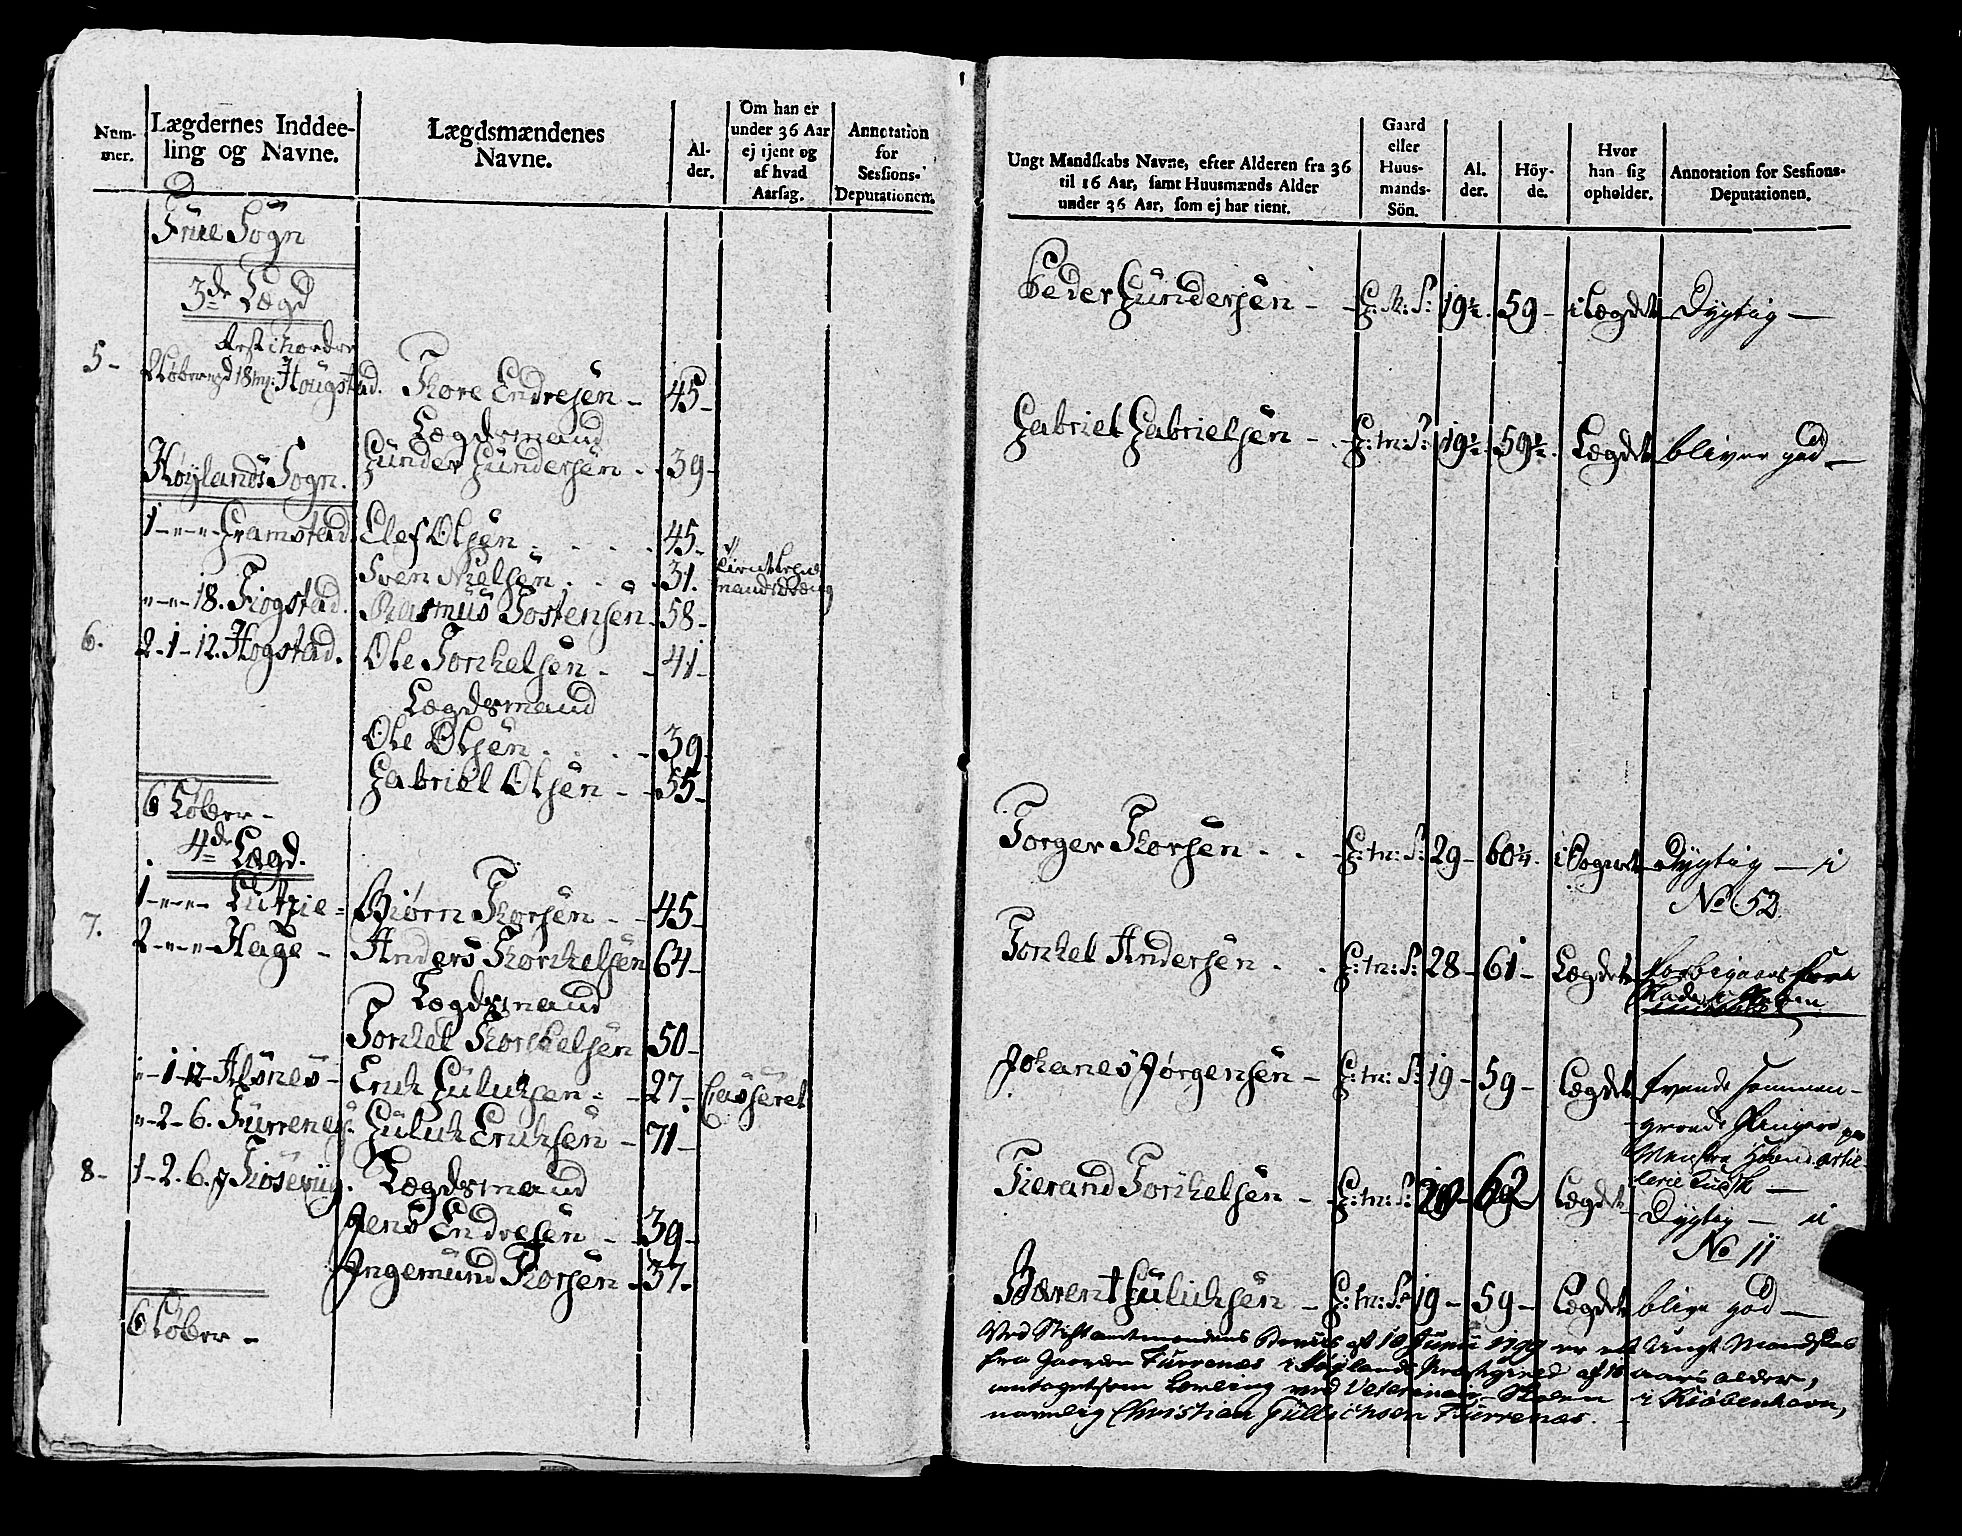 Num-
mer.
Lægdernes Inddee-
ling og Navne.
Lægdsmændenes
Navne.
Al-
der.
Om han er
under 36 Aar
ej tjent og
af hvad
Aarsag.
Annotation
for
Sessions-
Deputationen.
Frue Sogn
3de Lægd
Rest i
5- 18 Hougstad. Thore Endresen - 45-
Lægdsmand
Gunder Gundersen - 39-
Høylands Sogn.
1 - Gramstad. Elef Olsen 45-
Sven Nielsen 31.
18. Fiogstad. Rasmus Tostensen - 58-
6. 2-1-12. Hogstad. Ole Torkelsen - 41-
Lægdsmand
Ole Olsen 39
Gabriel Olsen - 55-
6 Løber -
4de Lægd.
1 - Lutzie - Biørn Thorsen - 45-
7. 2 - Hage - Anders Thorkelsen 64-
Lægdsmand
Torkel Thorkelsen 50-
1-12 Alsnes - Erik Guliksen - 27- Casseret
2-6. Furrenes. Gulik Eriksen - 71-
8- 1-2-6. Lægdsmand
Jens Endresen - 39-
Angemund Thorsen - 37-
6 Løber -
Ungt Mandskabs Navne, efter Alderen fra 36
til 16 Aar, samt Huusmænds Alder
under 36 Aar, som ej har tient.
Gaard
eller
Huus-
mands-
Sön.
Al.
der.
Höy-
de.
Hvor
han sig
opholder.
Annotation for Sessions-
Deputationen.
Peder Gundersen - G: S: 19½. 59 - i Lægdet Dygtig -
Gabriel Gabrielsen - G: m: S: 19½ 59½. Lægdet bliver god -
Torger Thorsen - G: m: S: 29 - 60¼. i Sognet Dygtig - i
No 52
Torkel Andersen - G: m: S: 28 - 61 - Lægdet
Johanes Jørgensen - G: m: S: 19 - 59 - Lægdet tvende sammen-
groede Fingere paa
Tierand Torkelsen - G: m: S: 62 Lægdet
Dygtig - i
No 11
Bærent Guliksen - G: m: S: 19 - 59 - Lægdet blive god -
Ved Stiftamtmandens af 10 Junii 1799 er et Ungt Mandskab
fra Gaarden Furrenæs i Høylands Præstegield af 18 aars alder,
antaget som Lærling ved Veterinair Skolen i Kiøbenhavn,
navnlig Christian Gullichsen Furrenæs.